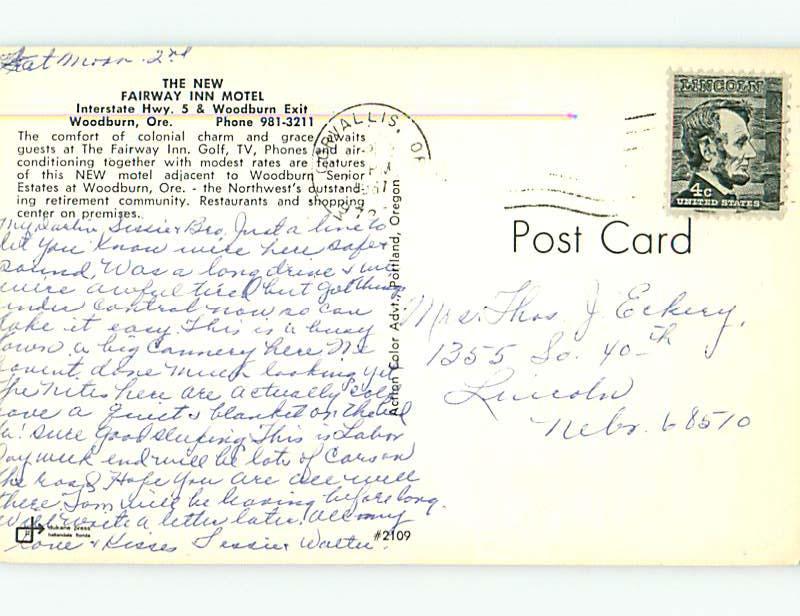 Sat Morn. 2nd
THE NEW
FAIRWAY INN MOTEL
Interstate Hwy. 5 & Woodburn Exit
Woodburn, Ore. Phone 981-3211
The comfort of colonial charm and grace awaits
guests at The Fairway Inn. Golf, TV, Phones and air-
conditioning together with modest rates are features
of this NEW motel adjacent to Woodburn Senior
Estates at Woodburn, Ore. - the Northwest's outstand-
ing retirement community. Restaurants and shopping
center on premises.
My Darlin Bro. Just a line to
let you know we're here safe &
sound. Was a long drive & we
were awful tired but got things
under control now so can
take it easy. This is a busy
town. a big cannery here
havent done much looking yet
The nites here are actually cold
have a quilt & blanket on the bed
Ha! sure good sleeping. This is Labor
Day week end will be lots of cars on
the road Hope you are all well
there. Tom will be leaving before long.
Will write a letter later. All my
Love & Kisses Walter.
dukane press
hollandale florida
#2109
Action Color Advt., Portland, Oregon
CORVALLIS, OR
PM
LINCOLN
4c
UNITED STATES
Post Card
Mrs. Thos. J. Eckery,
1355 So. 40th
Lincoln
Nebr. 68510